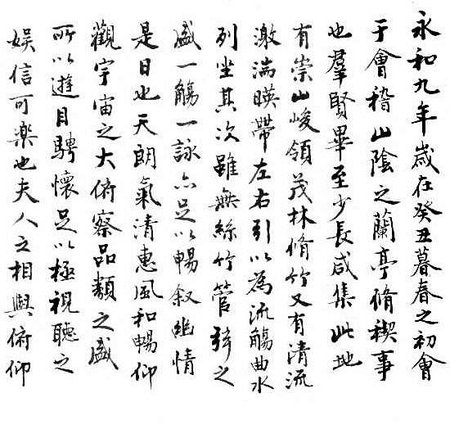 永和九年歲在癸丑暮春之初會
于會稽山陰之蘭亭脩禊事
也羣賢畢至少長咸集此地
有崇山峻領茂林脩竹又有清流
激湍暎帶左右引以為流觴曲水
列坐其次雖無絲竹管弦之
盛一觴一詠亦足以暢叙幽情
是日也天朗氣清惠風和暢仰
觀宇宙之大俯察品類之盛
所以遊目騁懷足以極視聽之
娛信可樂也夫人之相與俯仰